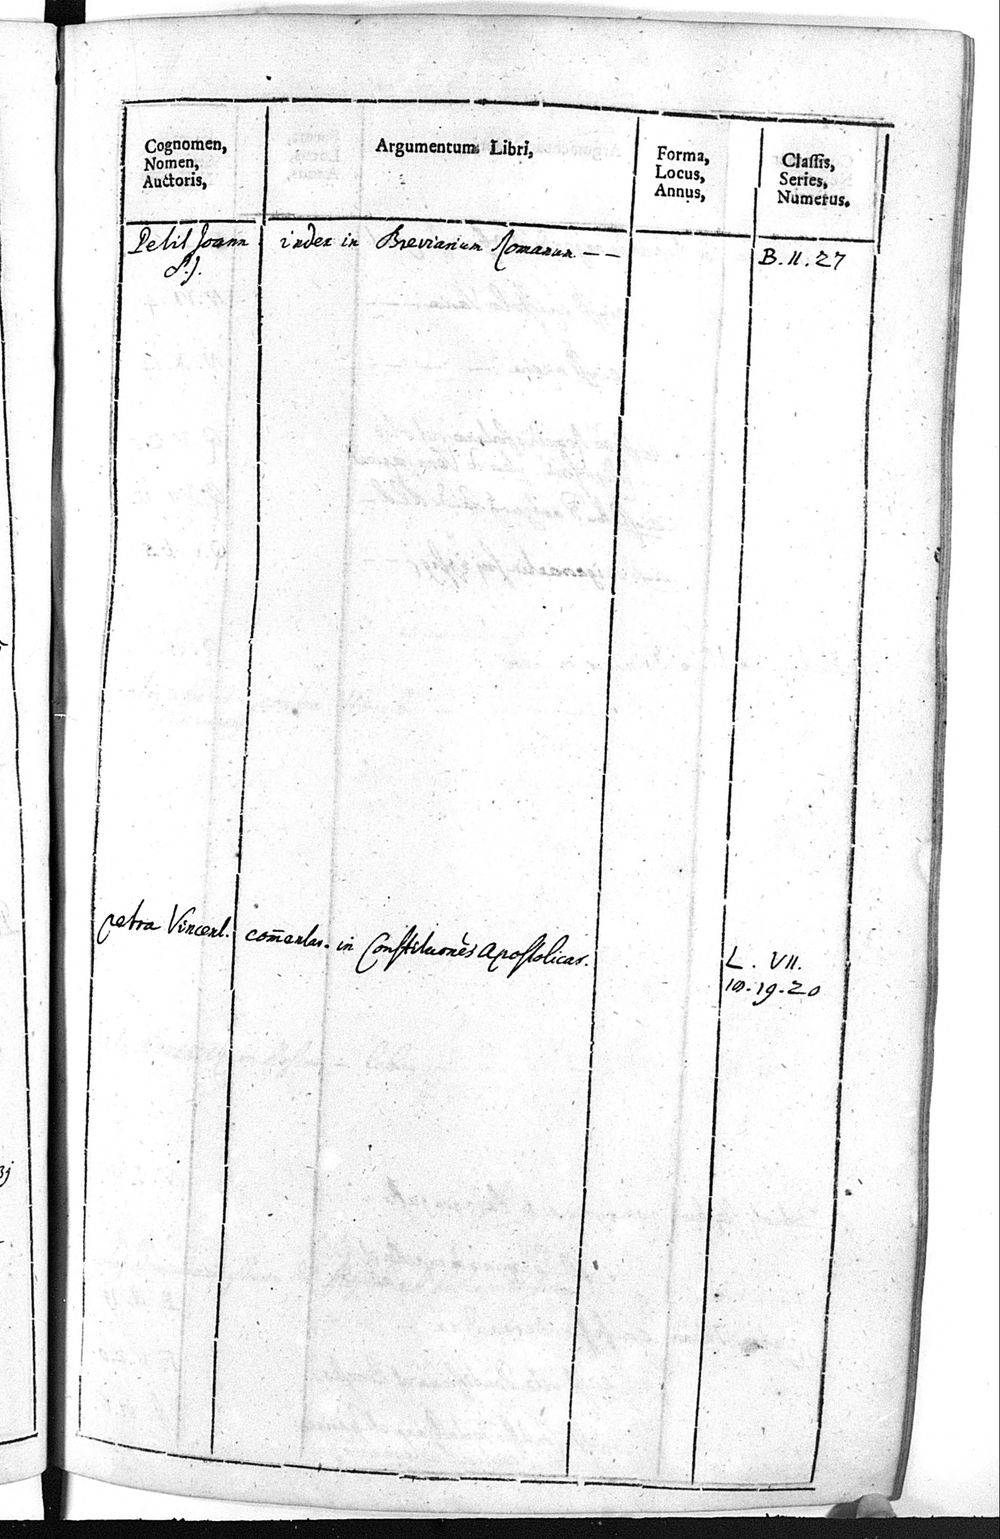 Cognomen,
Nomen,
Auctoris,
Argumentum Libri,
Forma,
Locus,
Annus,
Classis,
Series,
Numerus.
Petit Joann index in Breviarium Romanum -- B. II. 27
S.J.
petra Vincent. com̄entar. in Constituones Apostolicas. L. VII.
19-20